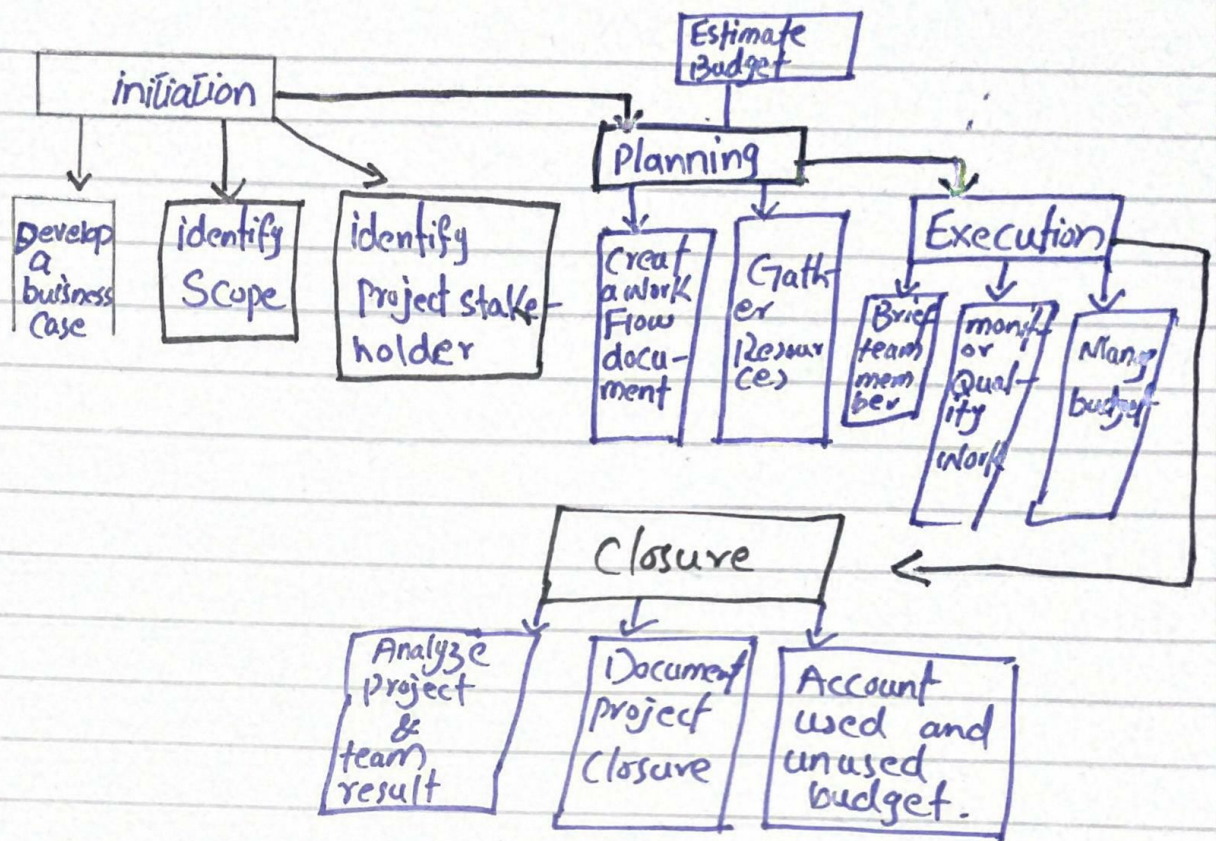 Estimate
Budget
initiation
Planning
Develop
a
buisness
case
identify
Scope
identify
project stake-
holder
Creat
a work
Flow
docu-
ment
Gath-
er
Resour
ces
Execution
Brief
team
mem
ber
monit-
or
Qual-
ity
work
Mang
budget
Closure
Analyze
project
&
team
result
Document
project
Closure
Account
used and
unused
budget.